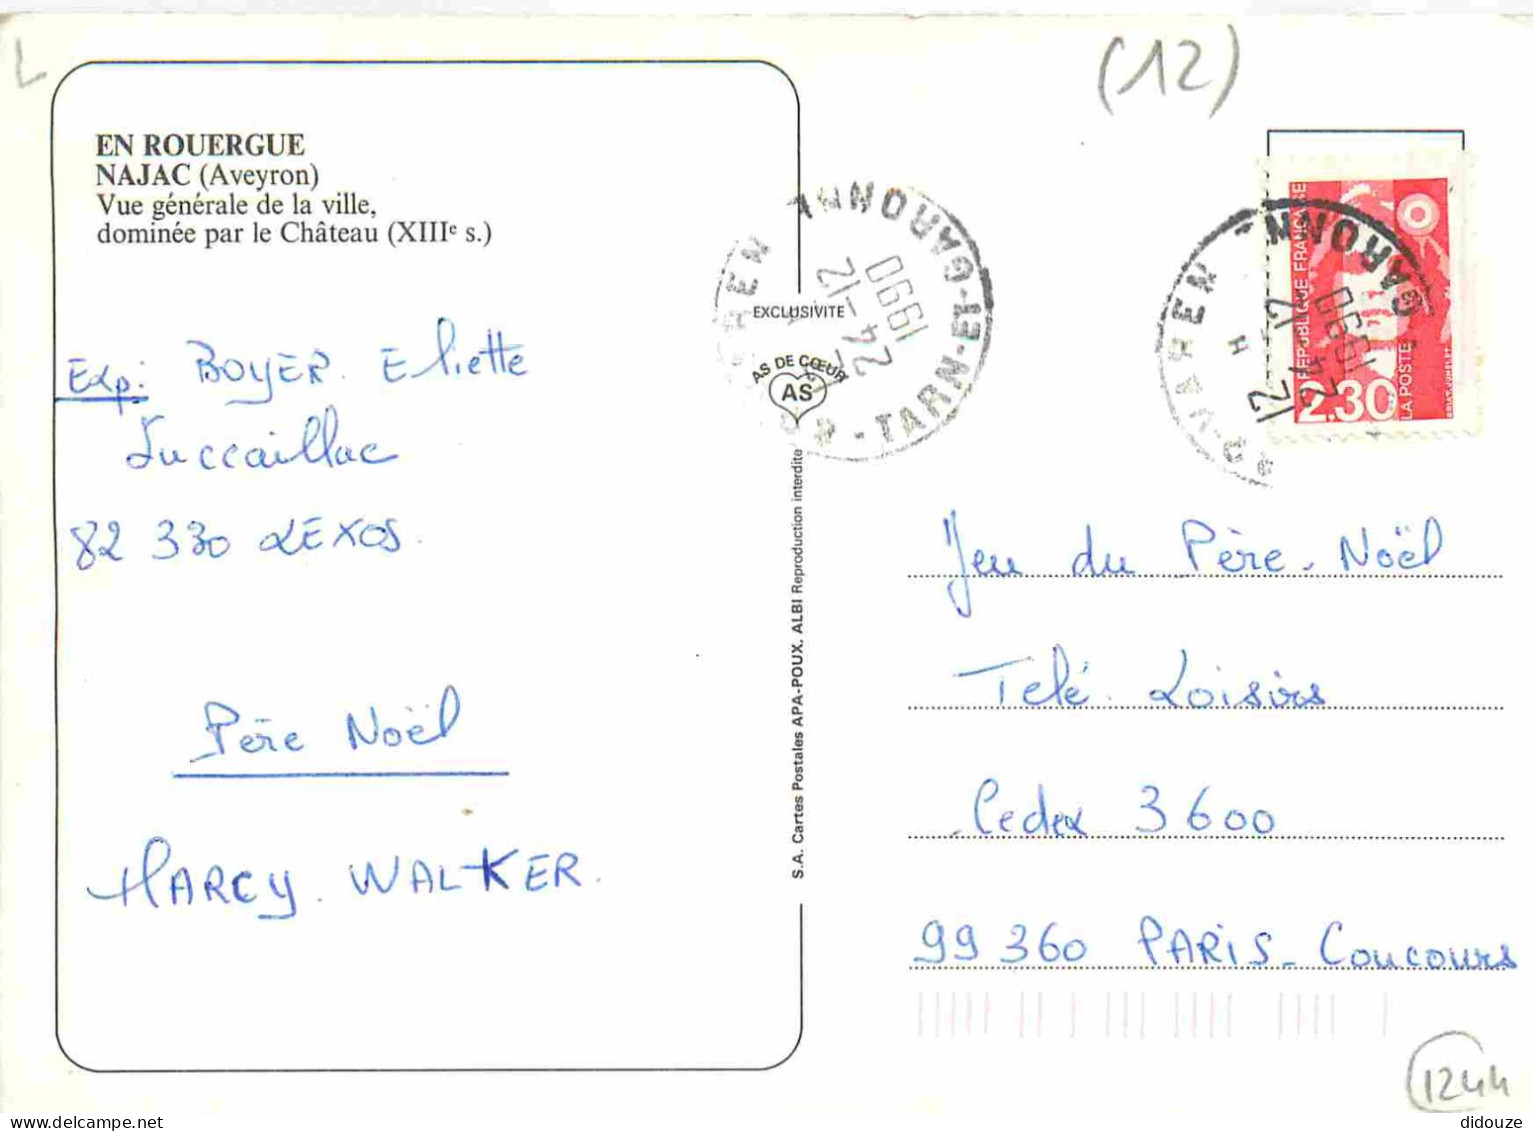 L
(12)
EN ROUERGUE
NAJAC (Aveyron)
Vue générale de la ville,
dominée par le Château (XIIIe s.)
Exp: BOYER Eliette
Luccaillac
82 330 LEXOS.
Père Noël
MARCY. WALKER.
EXCLUSIVITE
AS DE CŒUR
AS
S.A. Cartes Postales APA-POUX. ALBI Reproduction interdite
VAREN
TARN-ET-GARONNE
21 H
24-12
1990
VAREN
GARONNE
21 H
24-12
1990
REPUBLIQUE FRANÇAISE
2,30
LA POSTE
Jeu du Père. Noël
Télé. Loisirs
Cedex 3600
99 360 PARIS_ Concours
1244
delcampe.net
didouze